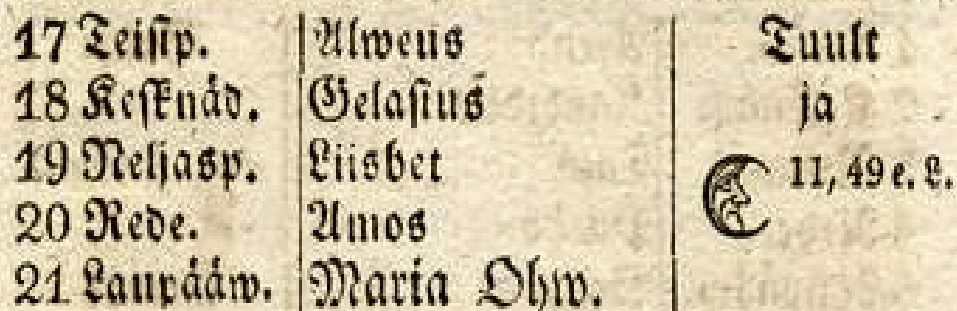 17 Teisip. Alweus Tuult
18 Kesknäd. Gelasius ja
19 Neljasp. Liisbet 11, 49 e. L.
20 Rede. Amos
21 Laupääw. Maria Ohw.